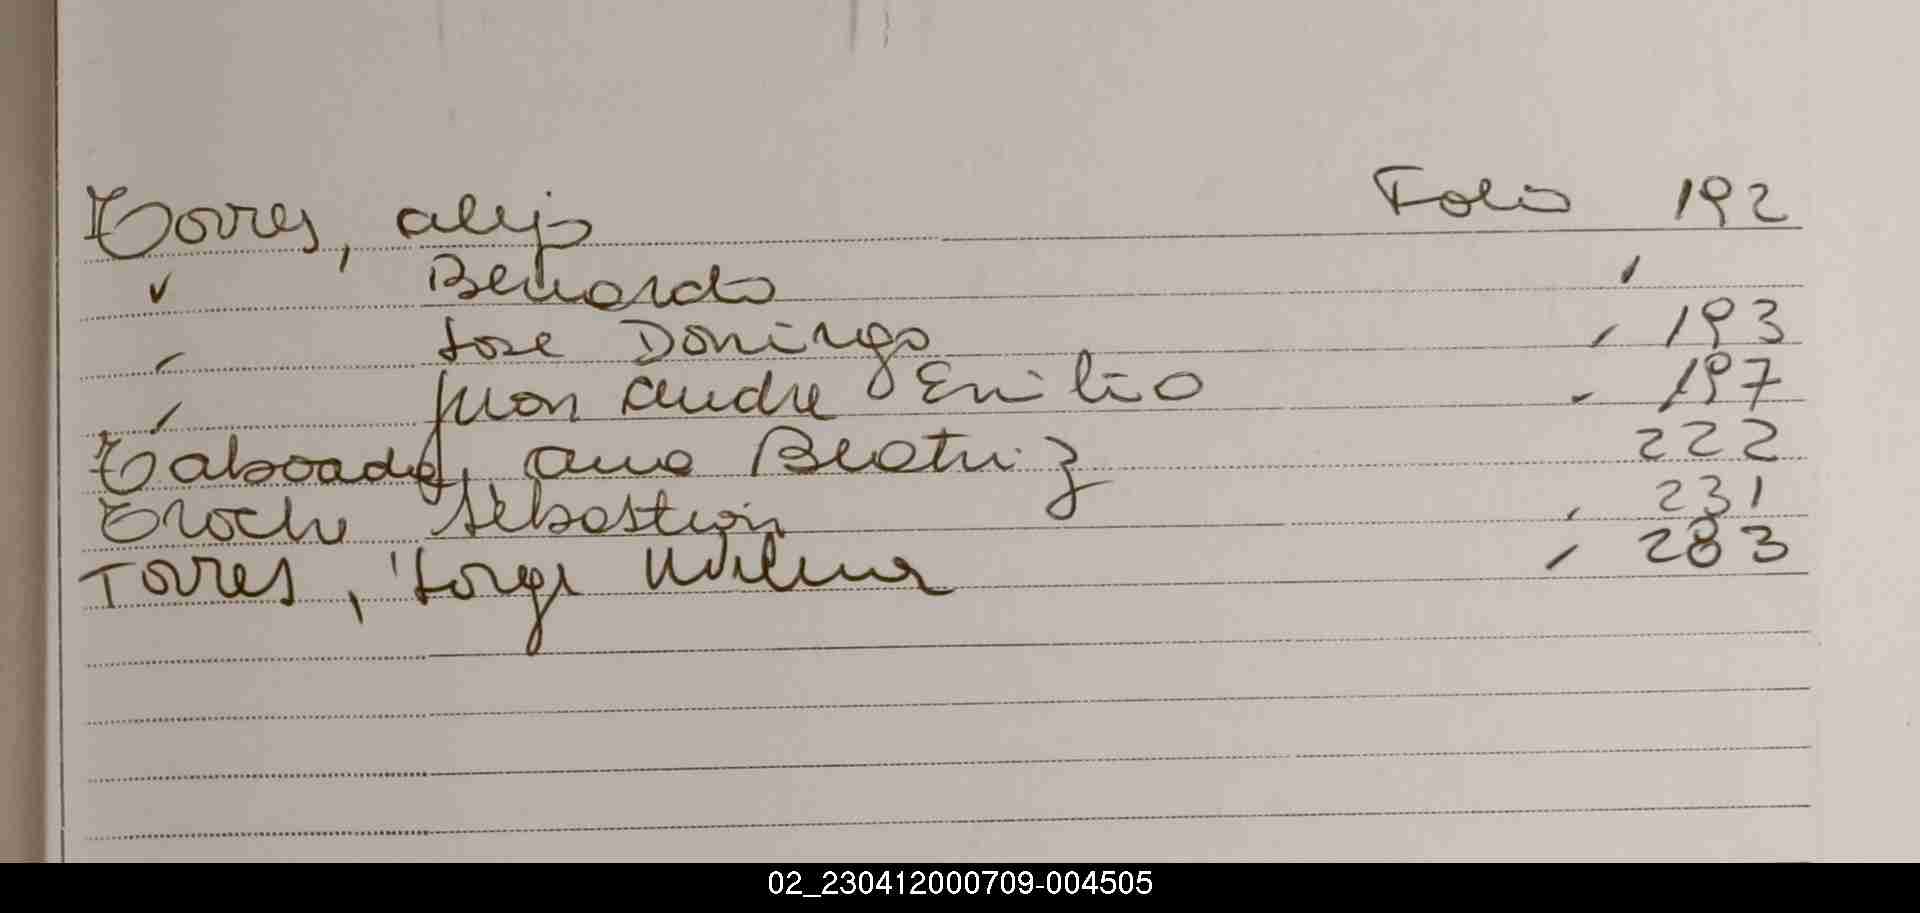 Torres, Alejo Folio 192
" Bernardo "
" Jose Domingo " 193
" Juan Andre Emilio " 197
Taboada, Ana Beatriz 222
Troche Sebastian " 231
Torres, Jorge " 283
02_230412000709-004505